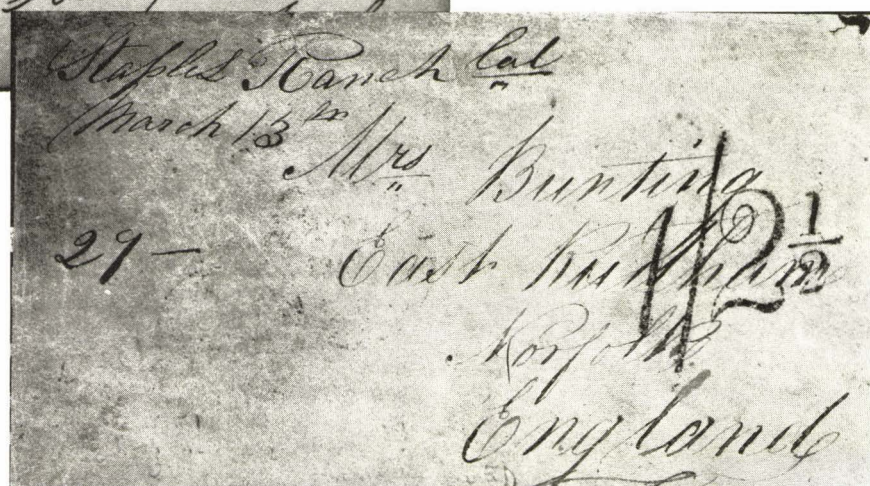 Staples Ranch Cal
March 13th
Mrs Bunting
29 — East Rudham
1/2½
Norfolk
England